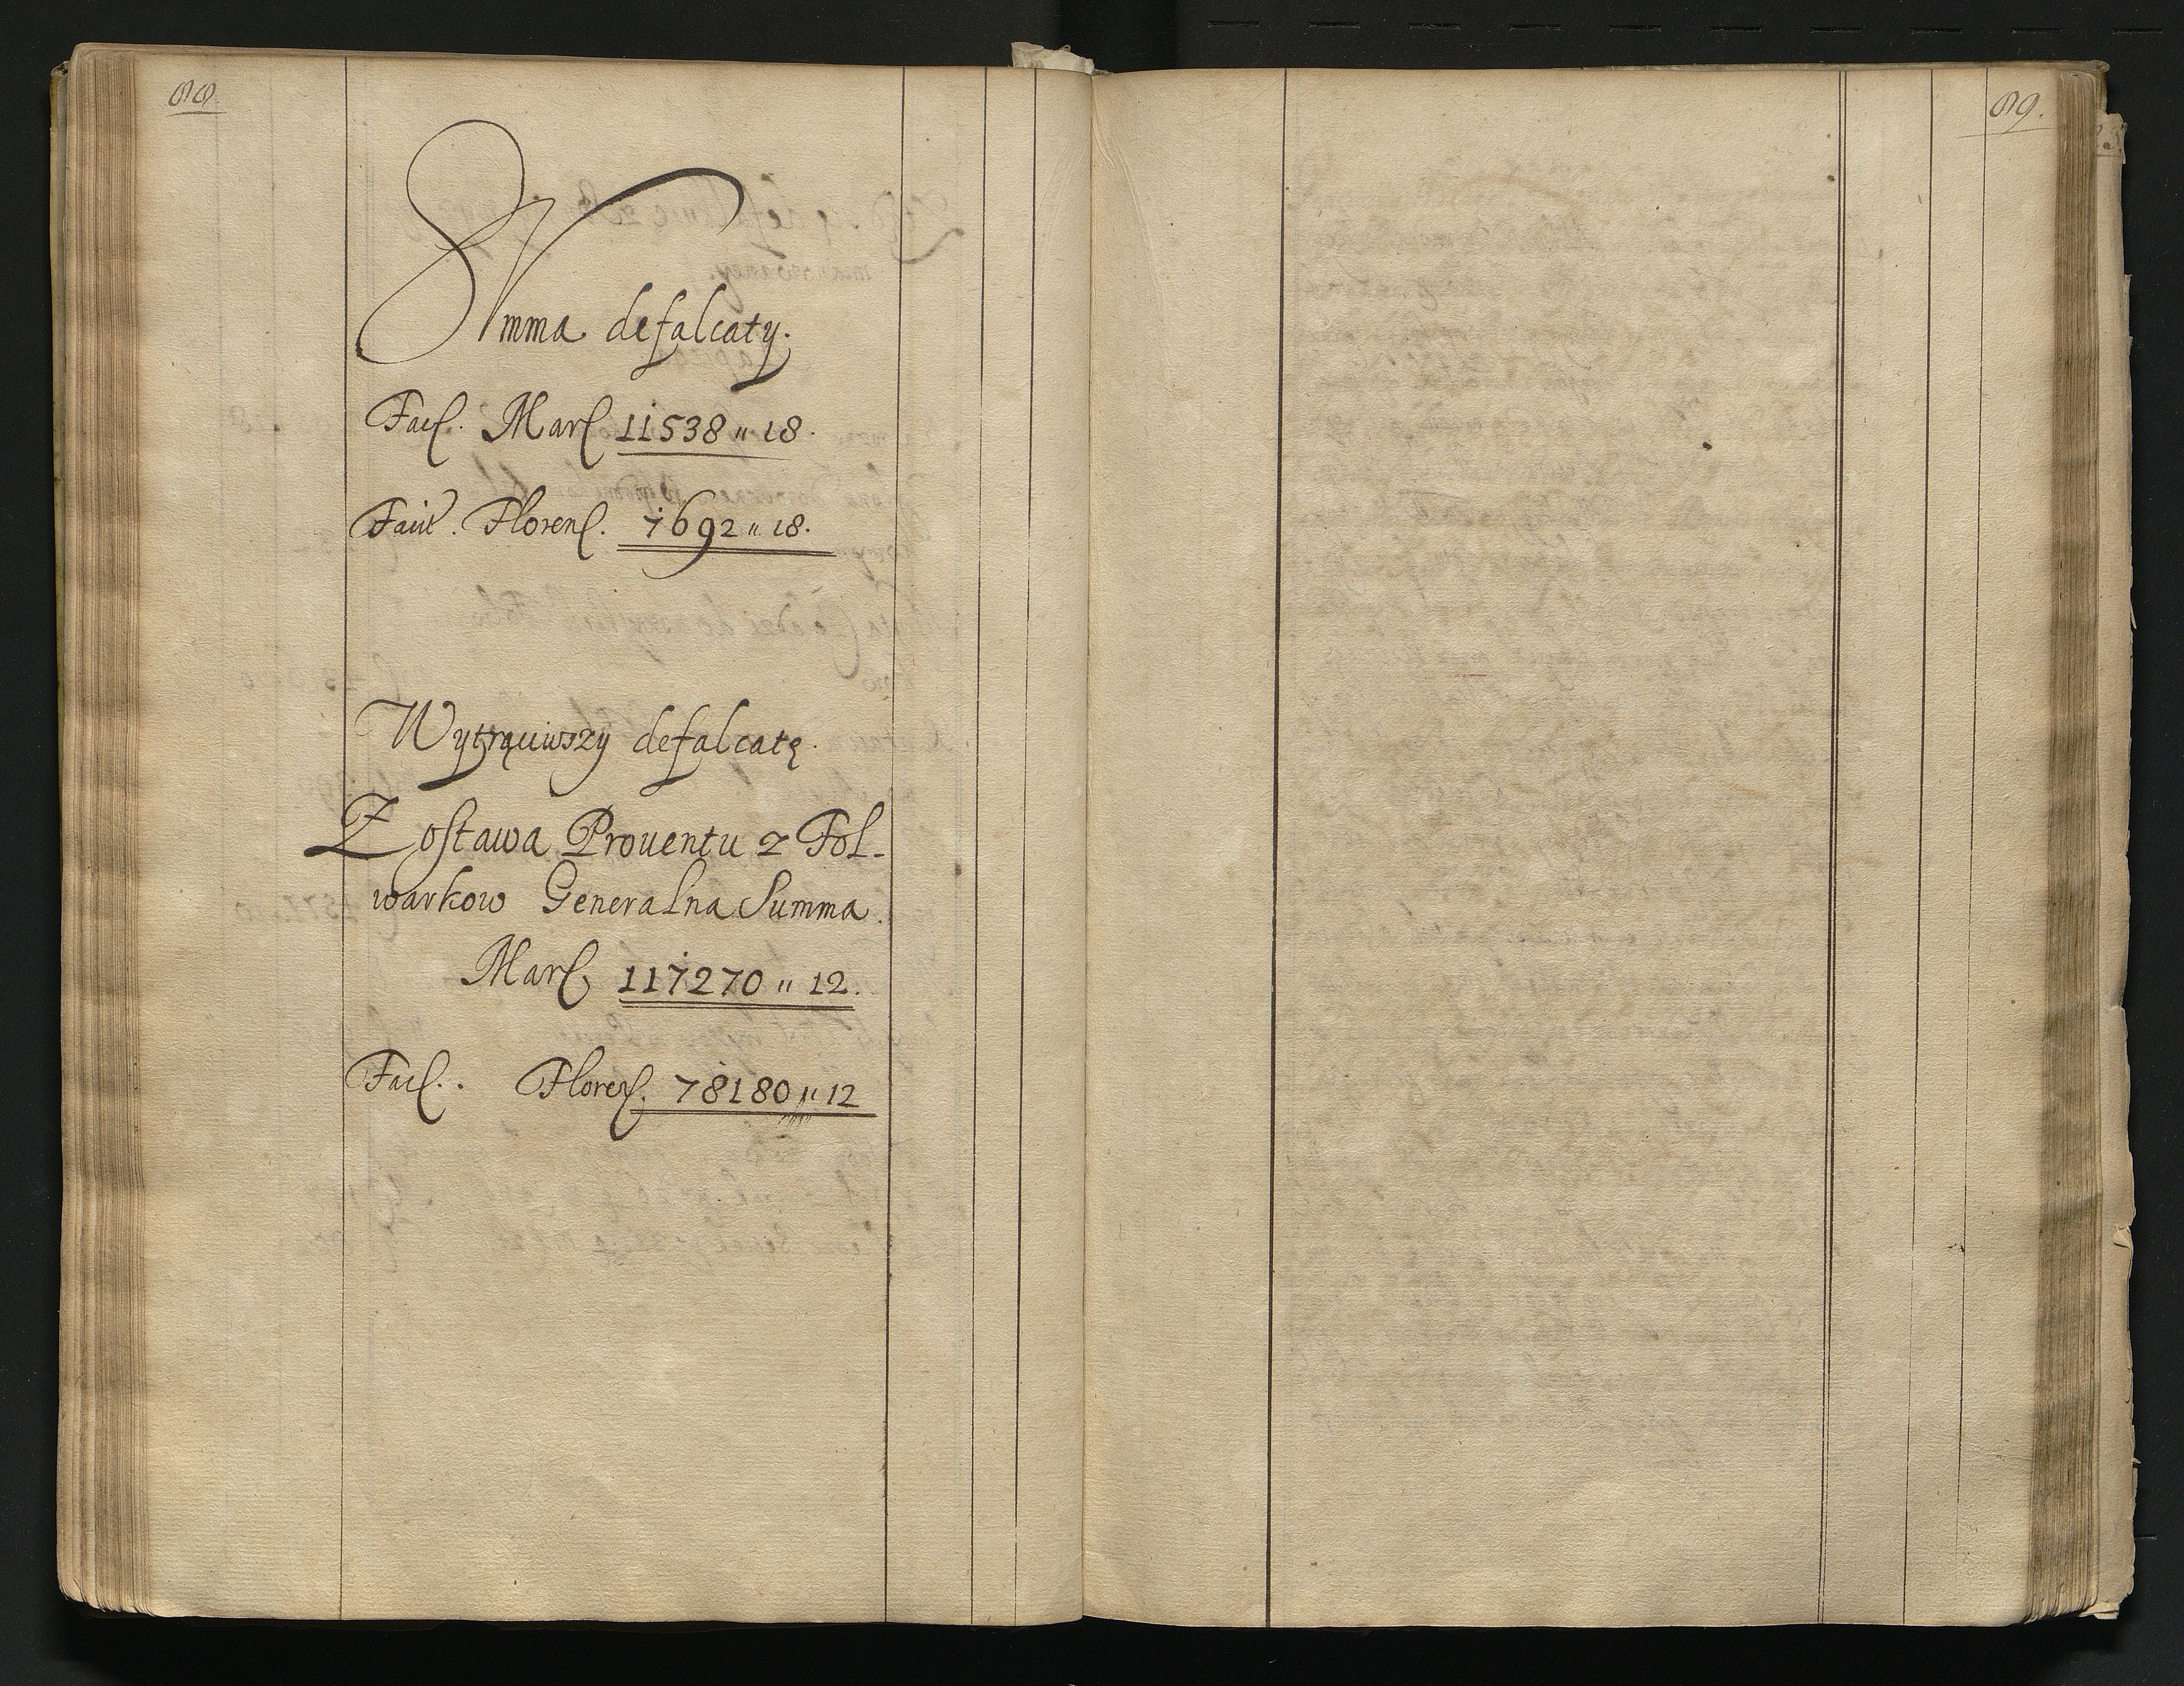 88.
SVmma defalcaty.
Fac. Marc 11538 " 18.
Facit. Floren. 7692 " 18.
Wytrąciwszy defalcatę.
Zostawa Prouentu z Fol-
warkow Generalna Summa.
Marc 117270 " 12.
Fac. Floren. 78180 " 12
89.